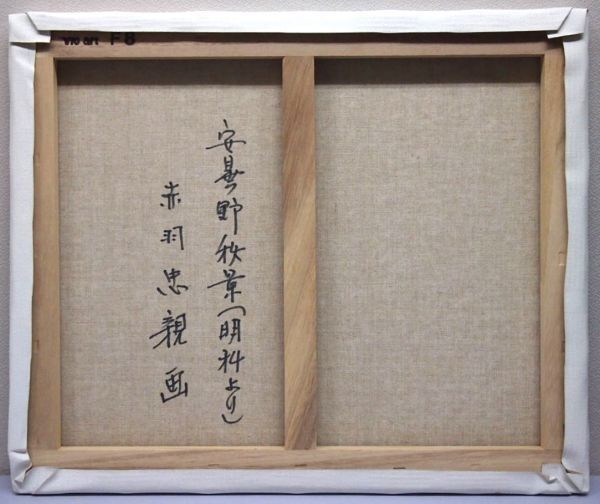 vio art F8
安曇野秋景(明科より)
赤羽忠親画